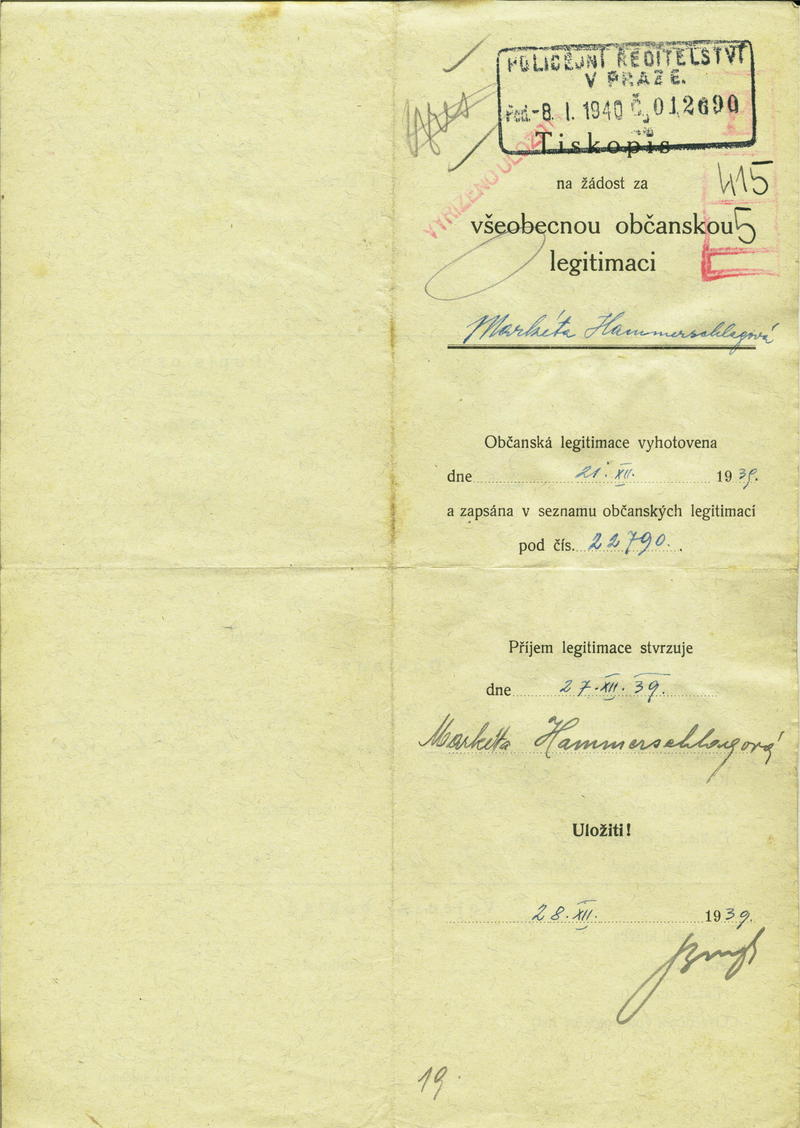 POLICEJNÍ ŘEDITELSTVÍ
V PRAZE.
Pod. -8. I. 1940 Č. 012690
Tiskopis
VYŘÍZENO ULOŽIT
na žádost za
415
všeobecnou občanskou
5
legitimaci
Markéta Hammerschlagová
Občanská legitimace vyhotovena
dne 21. XII. 1939.
a zapsána v seznamu občanských legitimací
pod čís. 22790.
Příjem legitimace stvrzuje
dne 27. XII. 39.
Markéta Hammerschlagová
Uložiti!
28. XII. 1939.
19.